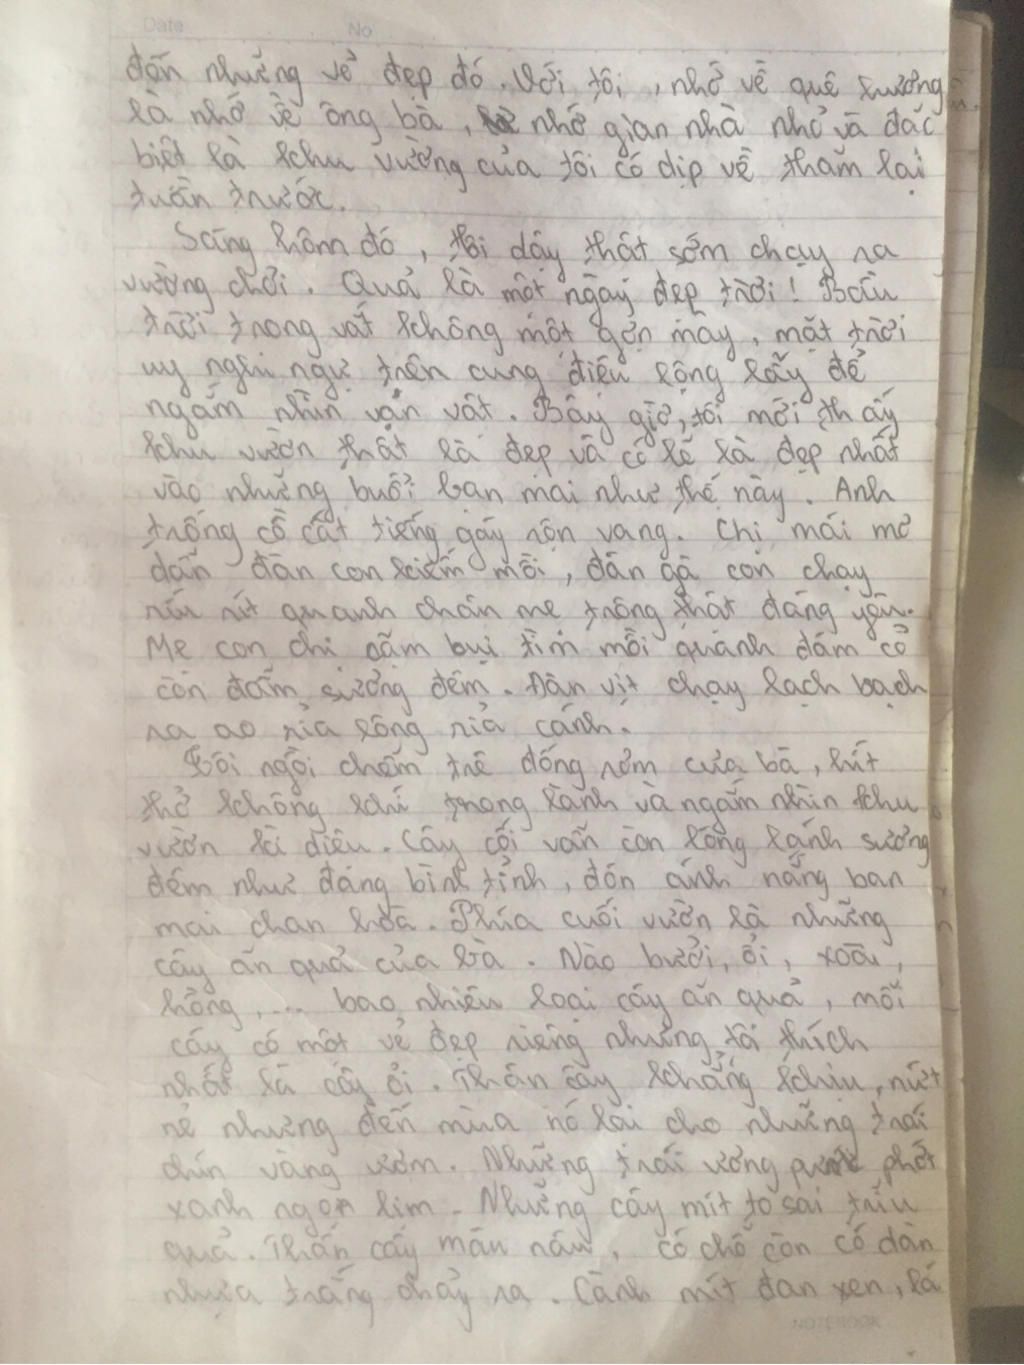 Date No
đến những vẻ đẹp đó. Với tôi, nhớ về quê hương
là nhớ về ông bà, nhớ gian nhà nhỏ và đặc
biệt là khu vường của tôi có dịp về thăm lại
tuần trước.
Sáng hôm đó, tôi dậy thật sớm chạy ra
vường chơi. Quả là một ngày đẹp trời! Bầu
trời trong vắt không một gợn mây, mặt trời
uy nghi ngự trên cung điệu lộng lẫy để
ngắm nhìn vạn vật. Bây giờ, tôi mới thấy
khu vườn thật là đẹp và có lẽ là đẹp nhất
vào những buổi ban mai như thế này. Anh
trống cồ cất tiếng gáy rộn vang. Chị mái mơ
dẫn đàn con kiếm mồi, đàn gà con chạy
ríu rít quanh chân mẹ trông thật đáng yêu.
Mẹ con chị cặm bụi tìm mồi quanh đám cỏ
còn đẫm sương đêm. Đàn vịt chạy lạch bạch
ra ao rỉa lông rỉa cánh.
Tôi ngồi chễm trệ đống rơm của bà, hít
thở không khí trong lành và ngắm nhìn khu
vườn kì diệu. Cây cối vẫn còn lóng lánh sương
đêm như đang bình tỉnh, đón ánh nắng ban
mai chan hòa. Phía cuối vườn là những
cây ăn quả của bà. Nào bưởi, ổi, xoài,
hồng, ... bao nhiêu loại cây ăn quả, mỗi
cây có một vẻ đẹp riêng nhưng tôi thích
nhất là cây ổi. Thân cây khẳng khiu, nứt
nẻ nhưng đến mùa nó lại cho những trái
chín vàng ươm. Những trái ương phớt
xanh ngon lịm. Những cây mít to sai trĩu
quả. Thân cây màu nâu, có chỗ còn có dàn
nhựa trắng chảy ra. Cành mít đan xen, lá
NOTEBOOK